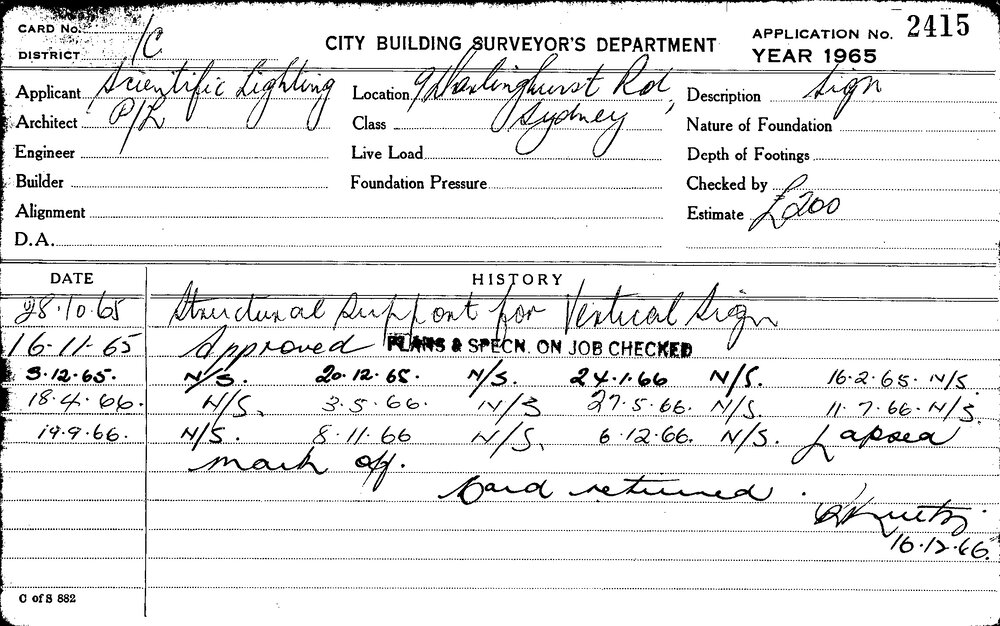 CARD No.
DISTRICT 1C
CITY BUILDING SURVEYOR'S DEPARTMENT
APPLICATION No. 2415
YEAR 1965
Applicant Scientific Lighting
Architect P/L
Engineer
Builder
Alignment
D.A.
Location 9 Darlinghurst Rd,
Class Sydney
Live Load
Foundation Pressure
Description Sign
Nature of Foundation
Depth of Footings
Checked by
Estimate £200
DATE HISTORY
28.10.65 Structural Support for Vertical Sign
16-11-65 Approved PLANS & SPECN. ON JOB CHECKED
3.12.65. N/S. 20.12.65. N/S. 24.1.66 N/S. 16.2.65. N/S
18.4.66. N/S. 3.5.66. N/S 27.5.66. N/S. 11.7.66. N/S.
19.9.66. N/S. 8.11.66 N/S. 6.12.66. N/S. Lapsed
mark off.
Card returned.
16.12.66.
C of S 882